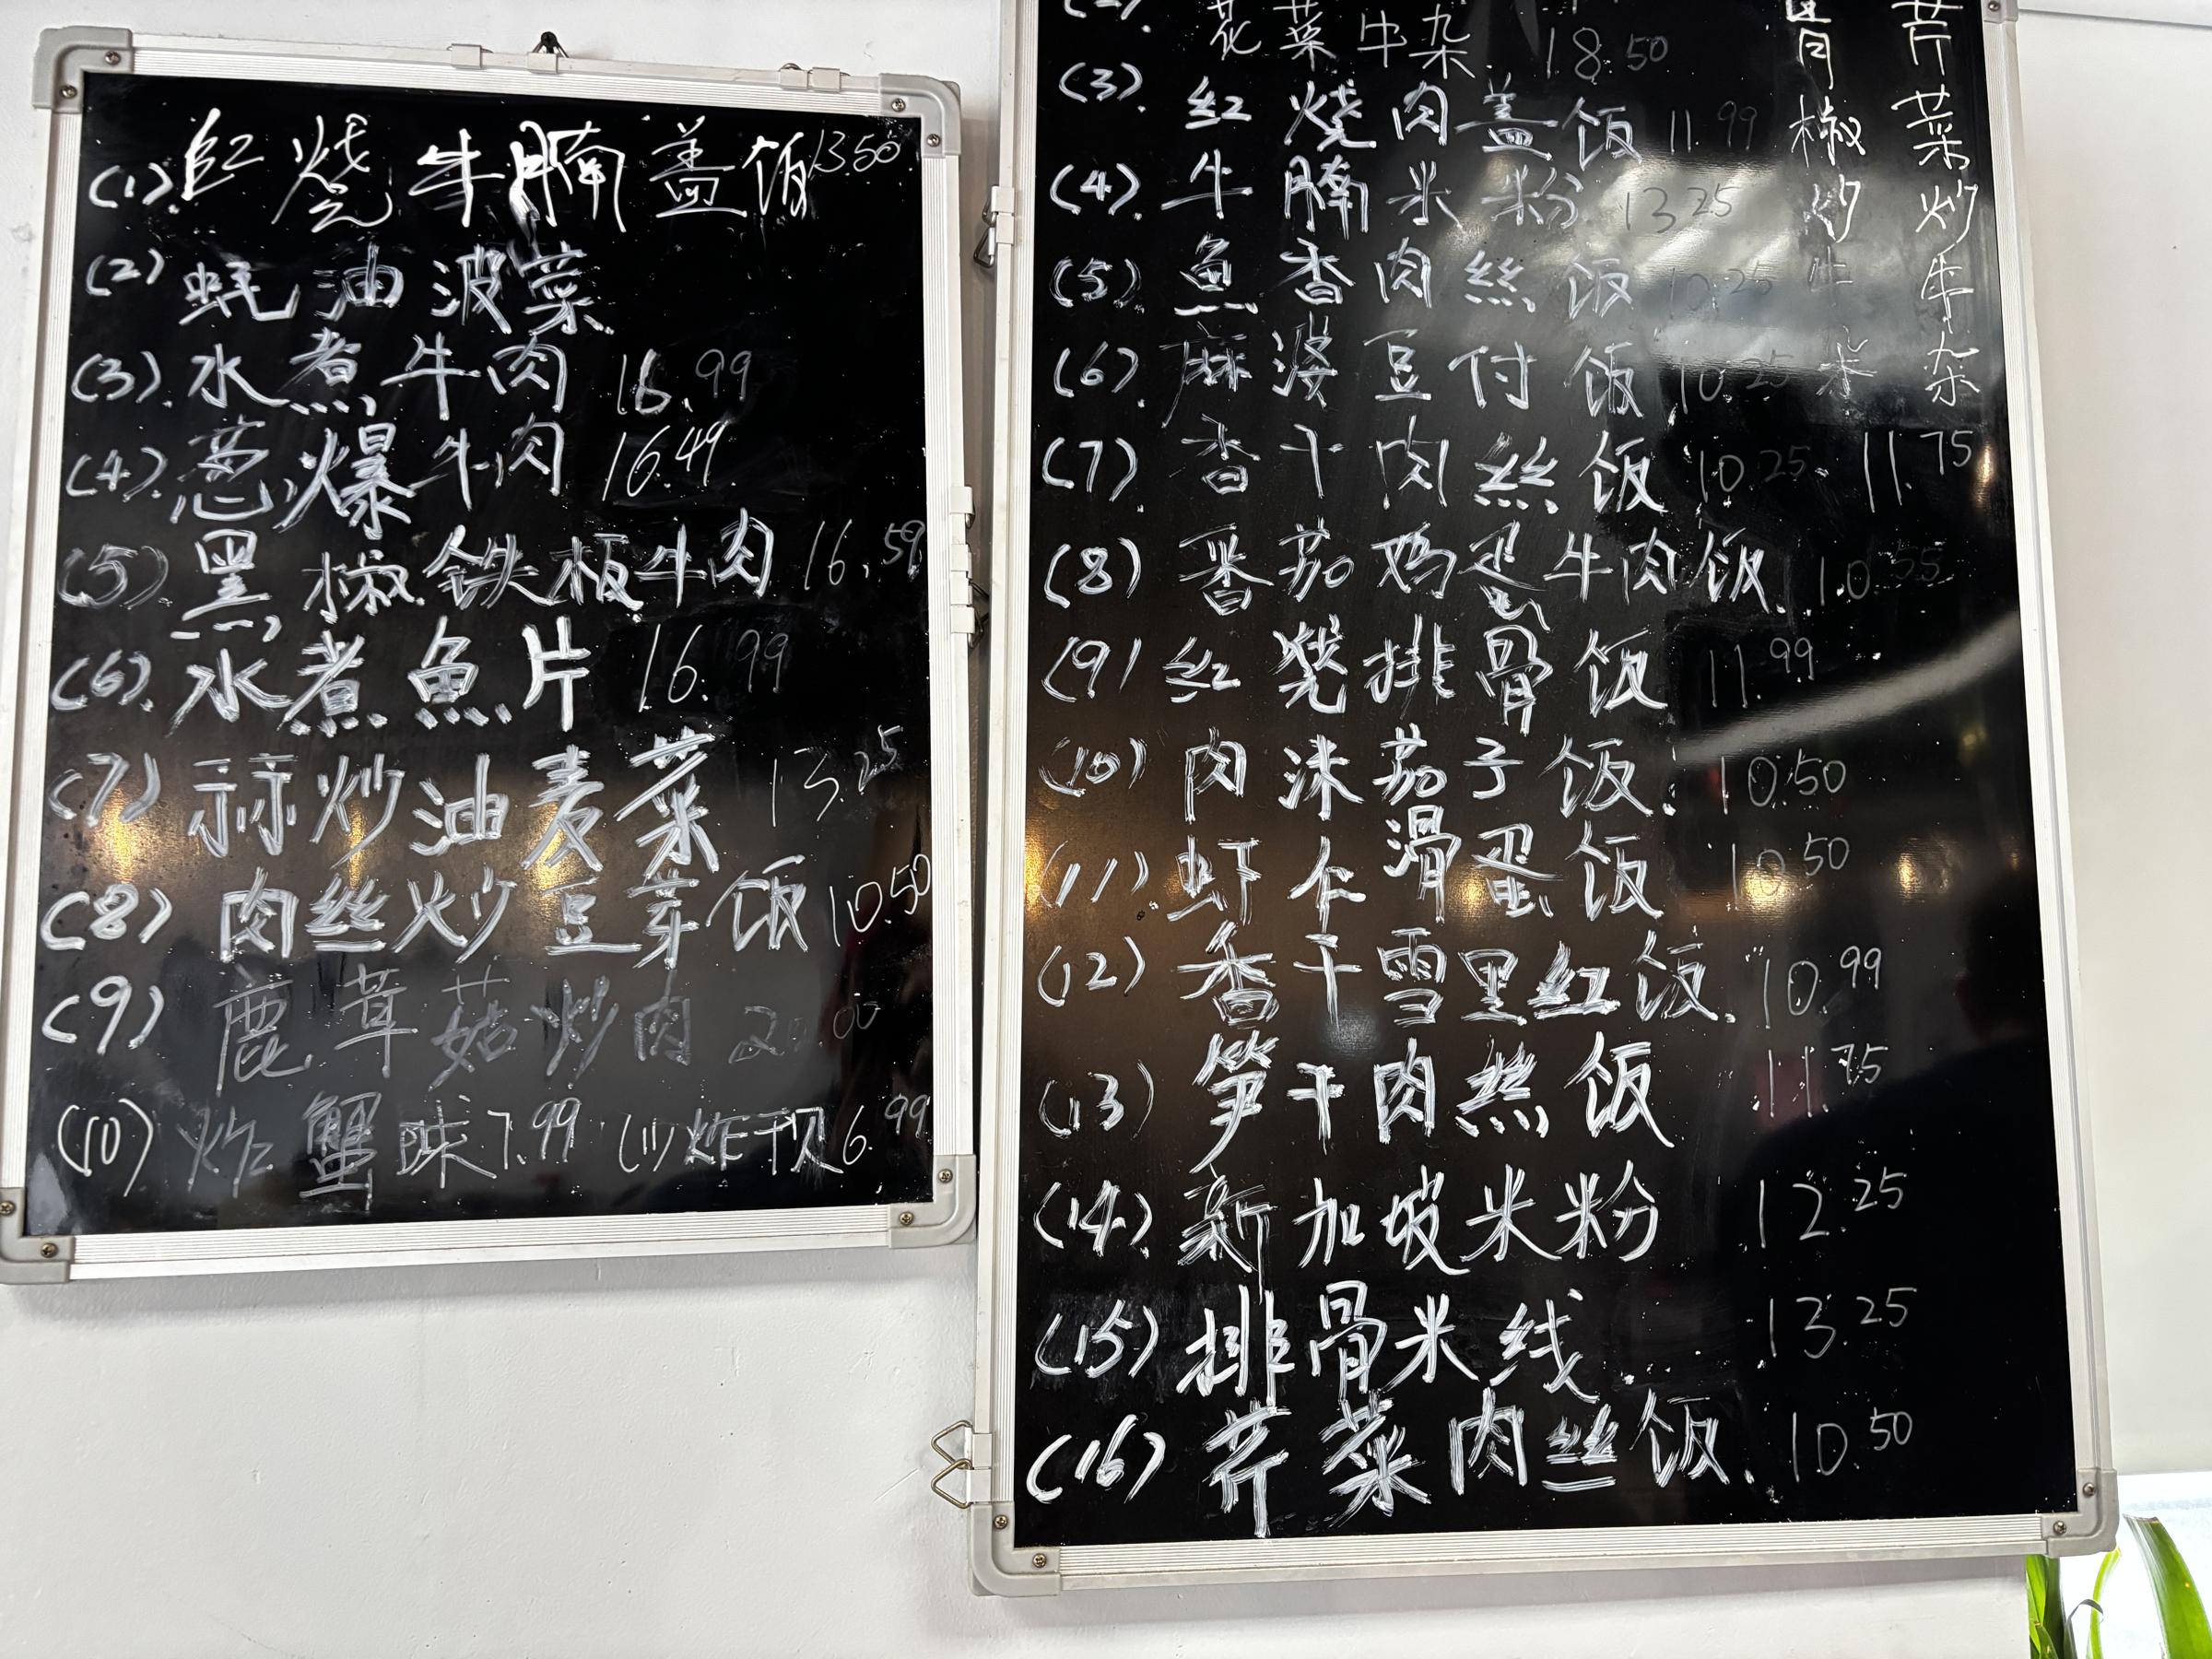 (1). 红烧牛腩盖饭 13.50
(2) 蚝油波菜
(3). 水煮牛肉 16.99
(4). 葱爆牛肉 16.49
(5) 黑椒铁板牛肉 16.59
(6). 水煮魚片 16.99
(7) 蒜炒油麦菜 13.25
(8) 肉丝炒豆芽饭 10.50
(9) 鹿茸菇炒肉 20.00
(10) 炸蟹味 7.99 (11) 炸干贝 6.99
花菜牛杂 18.50
(3). 红烧肉盖饭 11.99
(4). 牛腩米粉 13.25
(5). 魚香肉絲饭 10.25
(6). 麻婆豆付饭 10.25
(7). 香干肉絲饭 10.25
(8) 番茄鸡蛋牛肉饭. 10.55
(9) 红烧排骨饭 11.99
(10) 肉沫茄子饭. 10.50
(11). 虾仁滑蛋饭 10.50
(12) 香干雪里红饭. 10.99
(13) 笋干肉絲饭 11.75
(14). 新加坡米粉 12.25
(15) 排骨米线. 13.25
(16) 芹菜肉丝饭. 10.50
青椒炒牛
芹菜炒牛杂
11.75